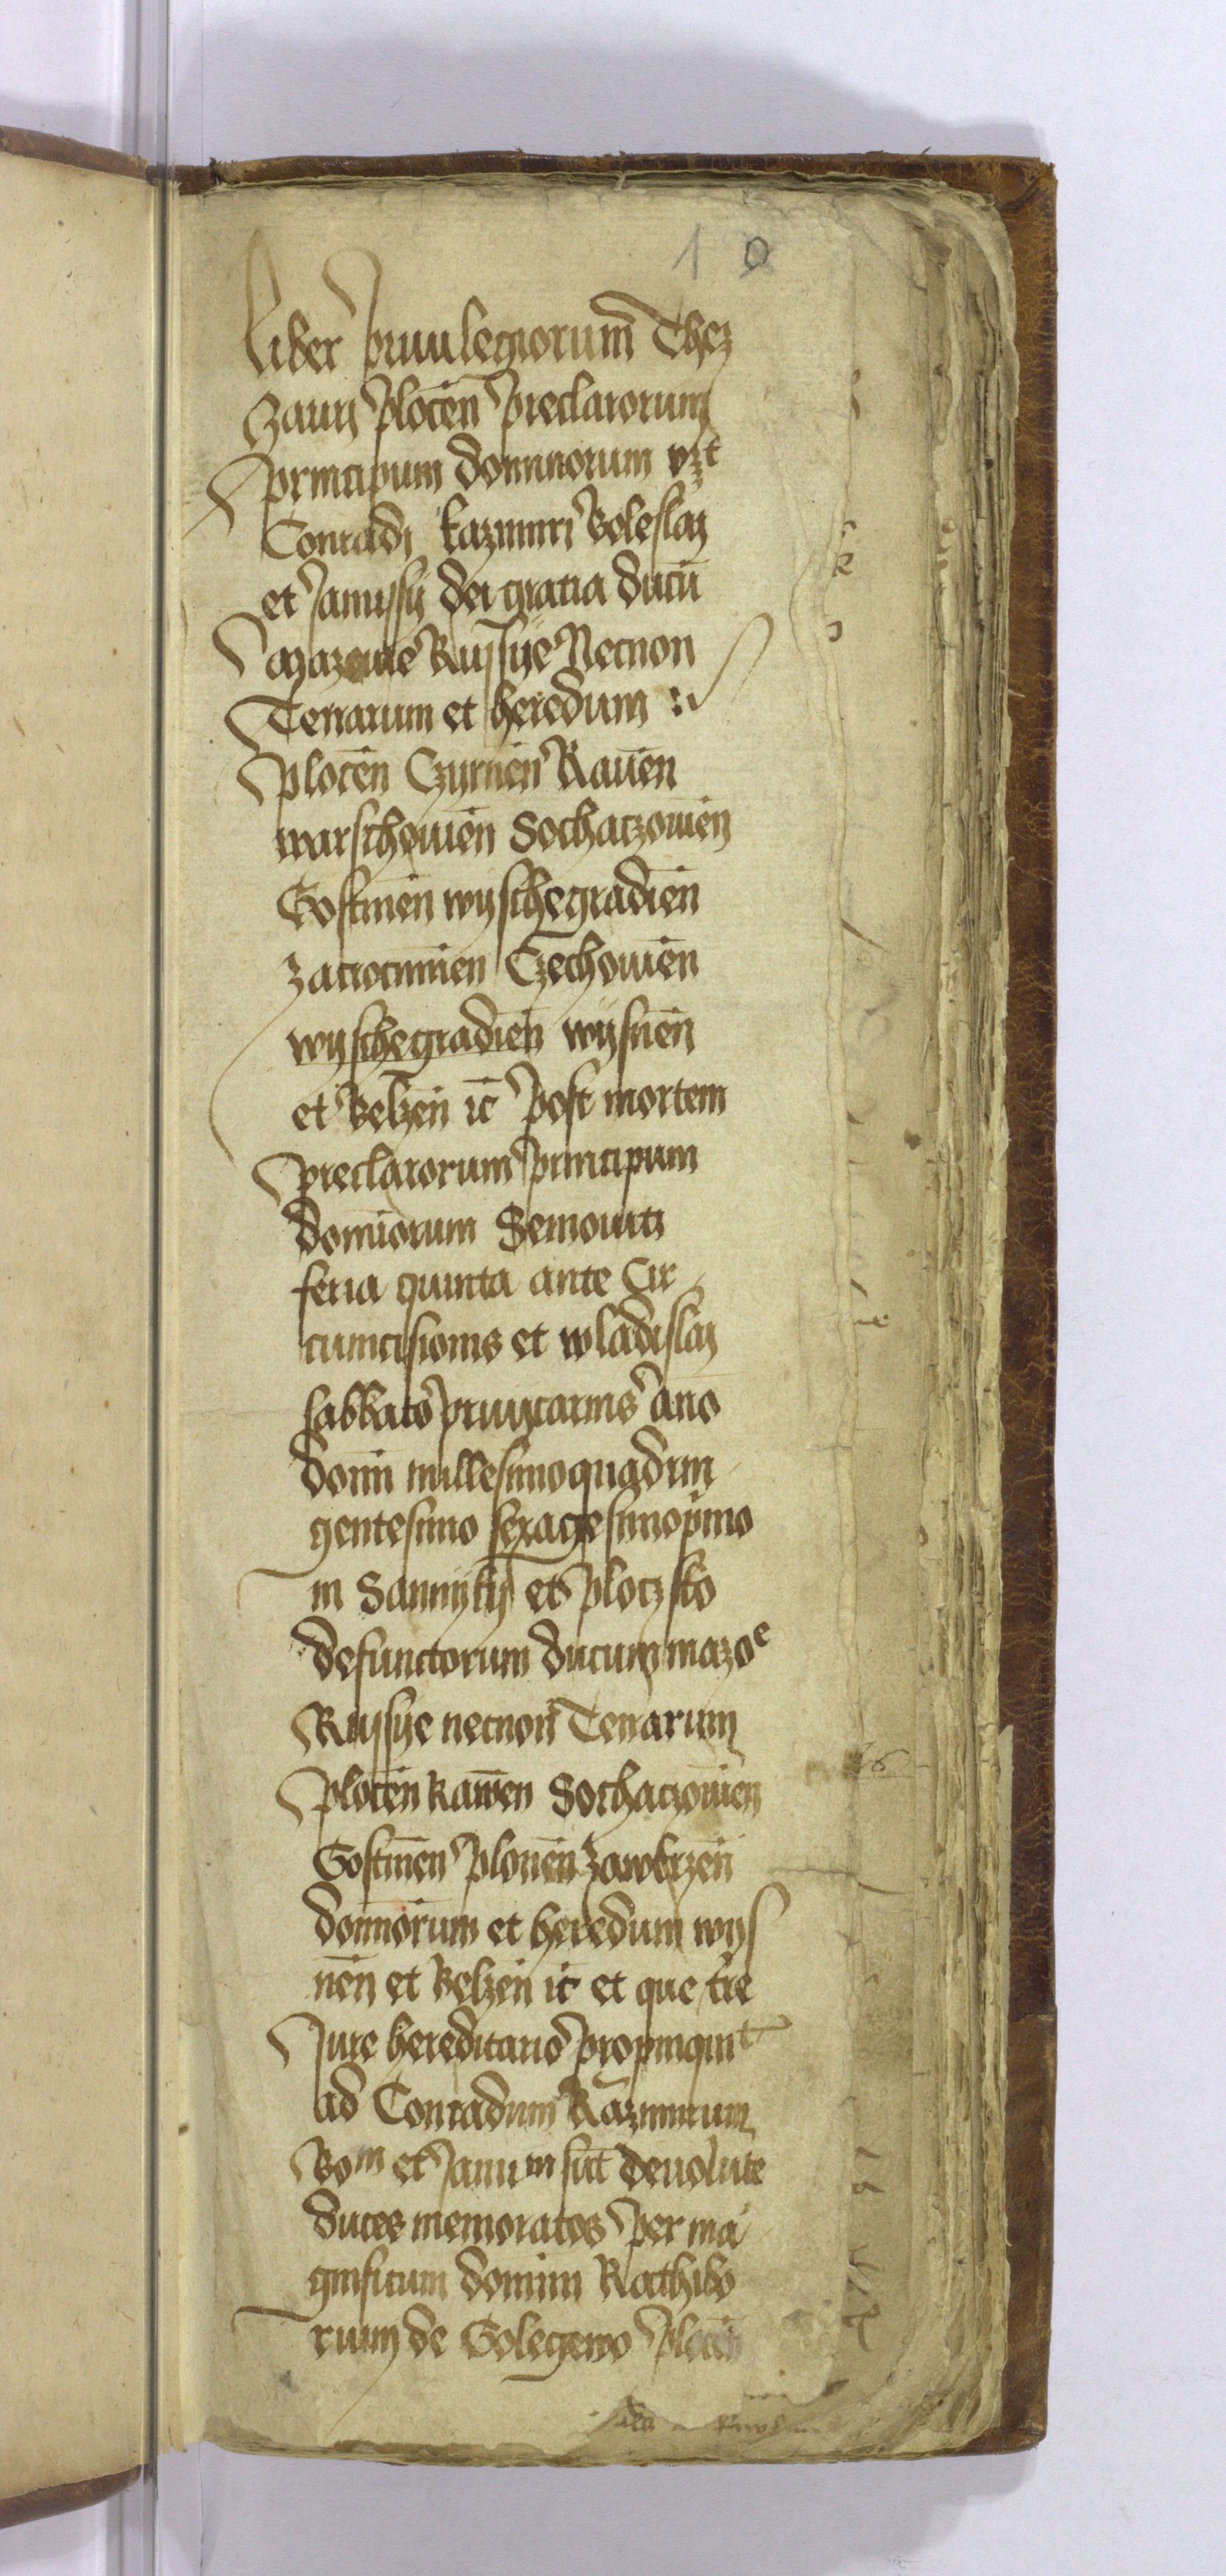 10
Liber priuilegiorum Thez
zauri plocen preclarorum
principum dominorum vzt
Conradi kazimiri Boleslaj
et Janussij dei gratia ducu
Mazouie Russije Necnon
Terrarum et heredum
plocen Czyrnen Rauen
warschouien Sochaczouien
Gostinen wyschegradien
zacrocimien Czechouien
wyschegradien wysnen
et Belzen ic post mortem
preclarorum principum
dominorum Semouiti
feria quinta ante Cir
cumcisionis et wladislaj
sabbato priuicarnis ano
domi millesimoquadrin
gentesimo sexagesimoprimo
in Sannyky et ploczsko
defunctorum ducum mazoe
Russye necnon Terrarum
plocen Rawen Sochaczouien
Gostinen plonen zawkrzen
dominorum et heredum wys
nen et Belzen ic et que tre
Jure hereditario propinquit
ad Conradum Kazimirum
Bom et Janum sut deuolute
duces memoratos per ma
gnificum domini Rathibo
rium de Golegewo plocen